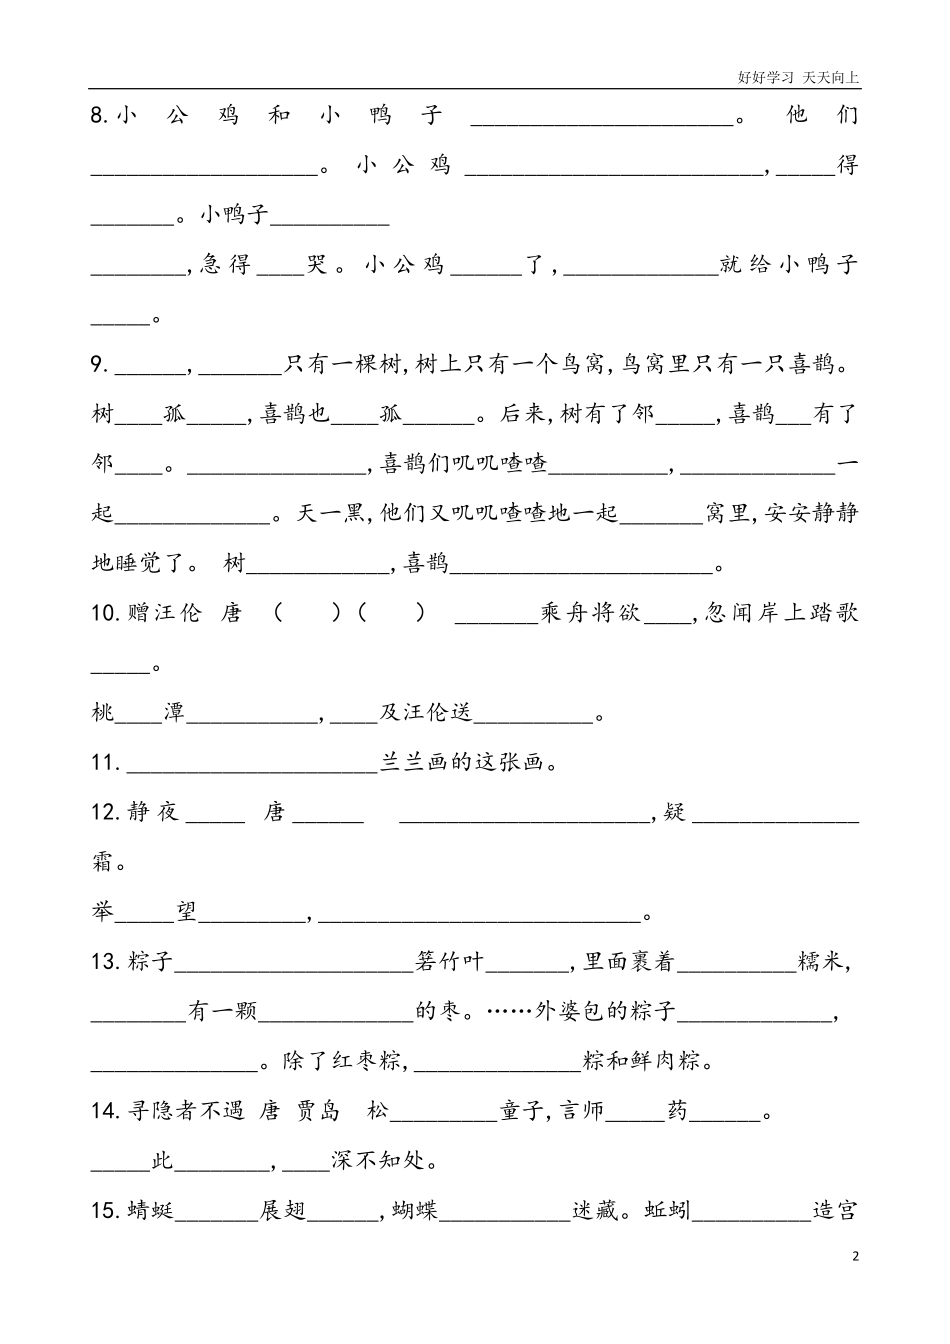 好好学习 天天向上
8.小 公 鸡 和 小 鸭 子 ______________________。 他 们
___________________。 小 公 鸡 _________________________,_____得
_______。小鸭子__________
________,急 得 ____哭 。 小 公 鸡 ______了 ,_____________就 给 小 鸭 子
_____。
9.______,_______只有一棵树,树上只有一个鸟窝,鸟窝里只有一只喜鹊。
树____孤_____,喜鹊也____孤______。后来,树有了邻_____,喜鹊___有了
邻____。_______________,喜鹊们叽叽喳喳__________,_____________一
起_____________。天一黑,他们又叽叽喳喳地一起_______窝里,安安静静
地睡觉了。 树____________,喜鹊______________________。
10.赠汪伦 唐 （ ）（ ） _______乘舟将欲____,忽闻岸上踏歌
_____。
桃____潭___________,____及汪伦送__________。
11._____________________兰兰画的这张画。
12.静 夜 _____ 唐 ______ _____________________,疑 ______________
霜。
举_____望_________,___________________________。
13.粽子____________________箬竹叶_______,里面裹着__________糯米,
________有一颗_____________的枣。……外婆包的粽子_____________,
______________。除了红枣粽,______________粽和鲜肉粽。
14.寻隐者不遇 唐 贾岛 松_________童子,言师_____药______。
_____此________,____深不知处。
15.蜻蜓_______展翅______,蝴蝶___________迷藏。蚯蚓__________造宫
2